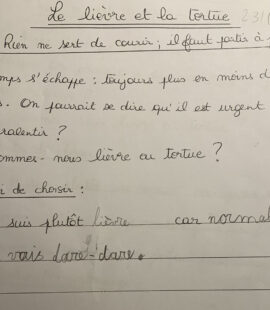 Le lièvre et la tortue 23/
Rien ne sert de courir; il faut partir à
mps s'échappe: toujours plus en moins d
s. On pourrait se dire qu'il est urgent
ralentir ?
ommes-nous lièvre ou tortue ?
i de choisir :
suis plutôt lièvre car normal
vais dare-dare.